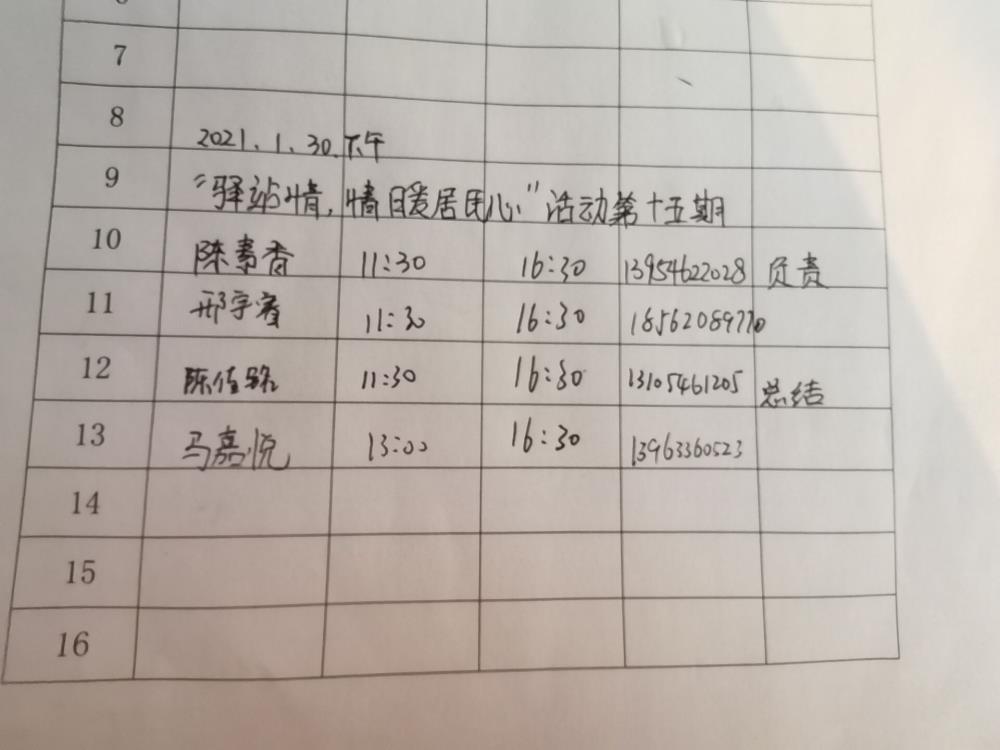 7
8
2021.1.30.下午
9
“驿站情,情暖居民心”活动第十五期
10 陈素香 11:30 16:30 13954622028 负责
11 11:30 16:30 18562089770
12 11:30 16:30 13105461205 总结
13 马嘉悦 13:00 16:30 13963360523
14
15
16